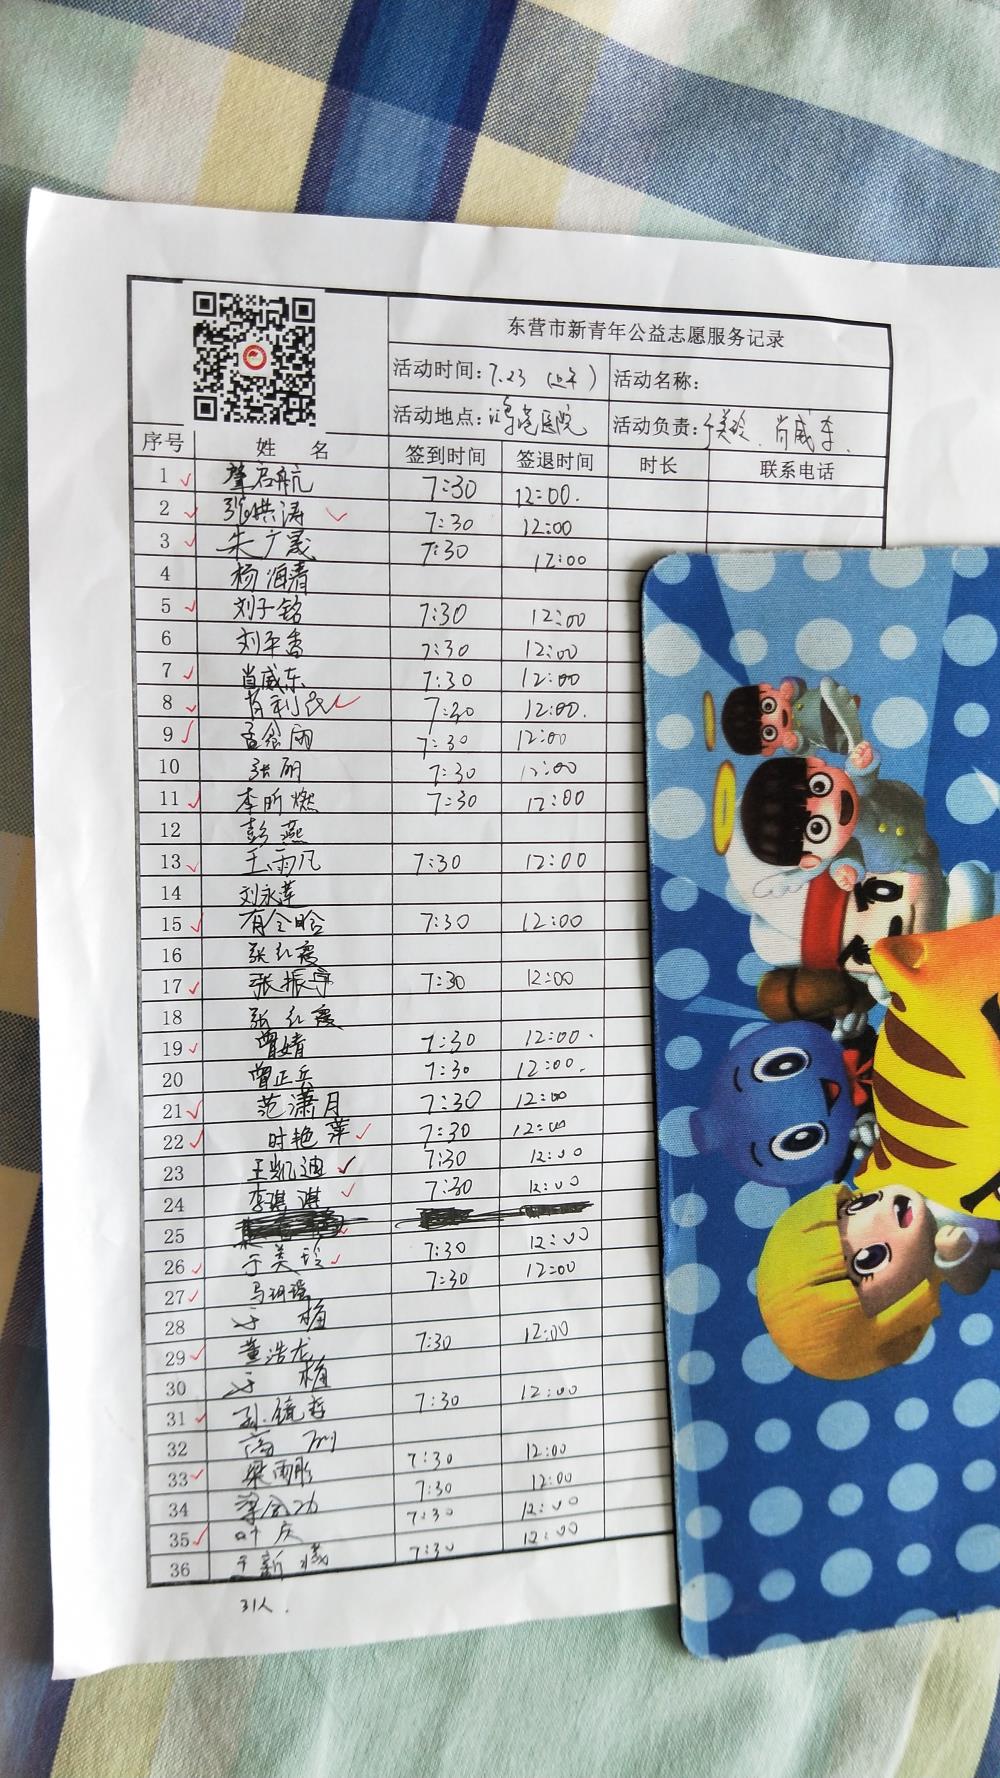 东营市新青年公益志愿服务记录
活动时间: 7.23 (上午) 活动名称:
活动地点: 医院 活动负责: 于美玲、肖威李.
序号 姓 名 签到时间 签退时间 时长 联系电话
1 启航 7:30 12:00.
2 张洪涛 7:30 12:00
3 朱广晟 7:30 12:00
4 杨海青
5 刘子铭 7:30 12:00
6 刘平香 7:30 12:00
7 肖威东 7:30 12:00
8 肖利民 7:30 12:00.
9 孟令雨 7:30 12:00
10 张丽 7:30 12:00
11 李昕燃 7:30 12:00
12 彭燕
13 王雨凡 7:30 12:00
14 刘永莲
15 有全晗 7:30 12:00
16 张红霞
17 张振宇 7:30 12:00
18 张红霞
19 曾婧 7:30 12:00.
20 曾正兵 7:30 12:00.
21 范潇月 7:30 12:00
22 时艳萍 7:30 12:00
23 王凯迪 7:30 12:00
24 李琪淇 7:30 12:00
25
26 于美玲 7:30 12:00
27 马珂瑶 7:30 12:00
28 于梅
29 董浩龙 7:30 12:00
30 于梅
31 孙毓哲 7:30 12:00
32 高
33 梁雨彤 7:30 12:00
34 梁 7:30 12:00
35 叶庆 7:30 12:00
36 王新 7:30 12:00
31人.